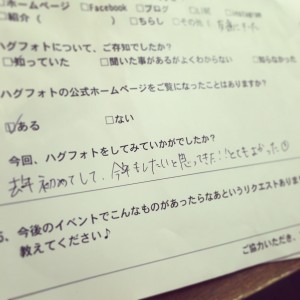 □ホームページ □Facebook □ブログ □LINE □Instagram
□紹介( ) □ちらし □その他(
ハグフォトについて、ご存知でしたか?
□知っていた □聞いた事があるがよくわからない □知らなかった
ハグフォトの公式ホームページをご覧になったことはありますか?
☑ある □ない
今回、ハグフォトをしてみていかがでしたか?
去年初めてして、今年もしたいと思ってきた!!とてもよかった☺
5、今後のイベントでこんなものがあったらなあというリクエストあります
教えてください♪
ご協力いただき、